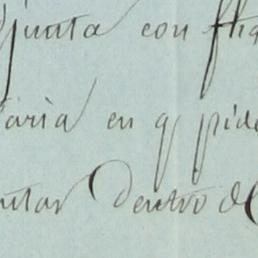 junta con fha
taria en q pide
ntar dentro de